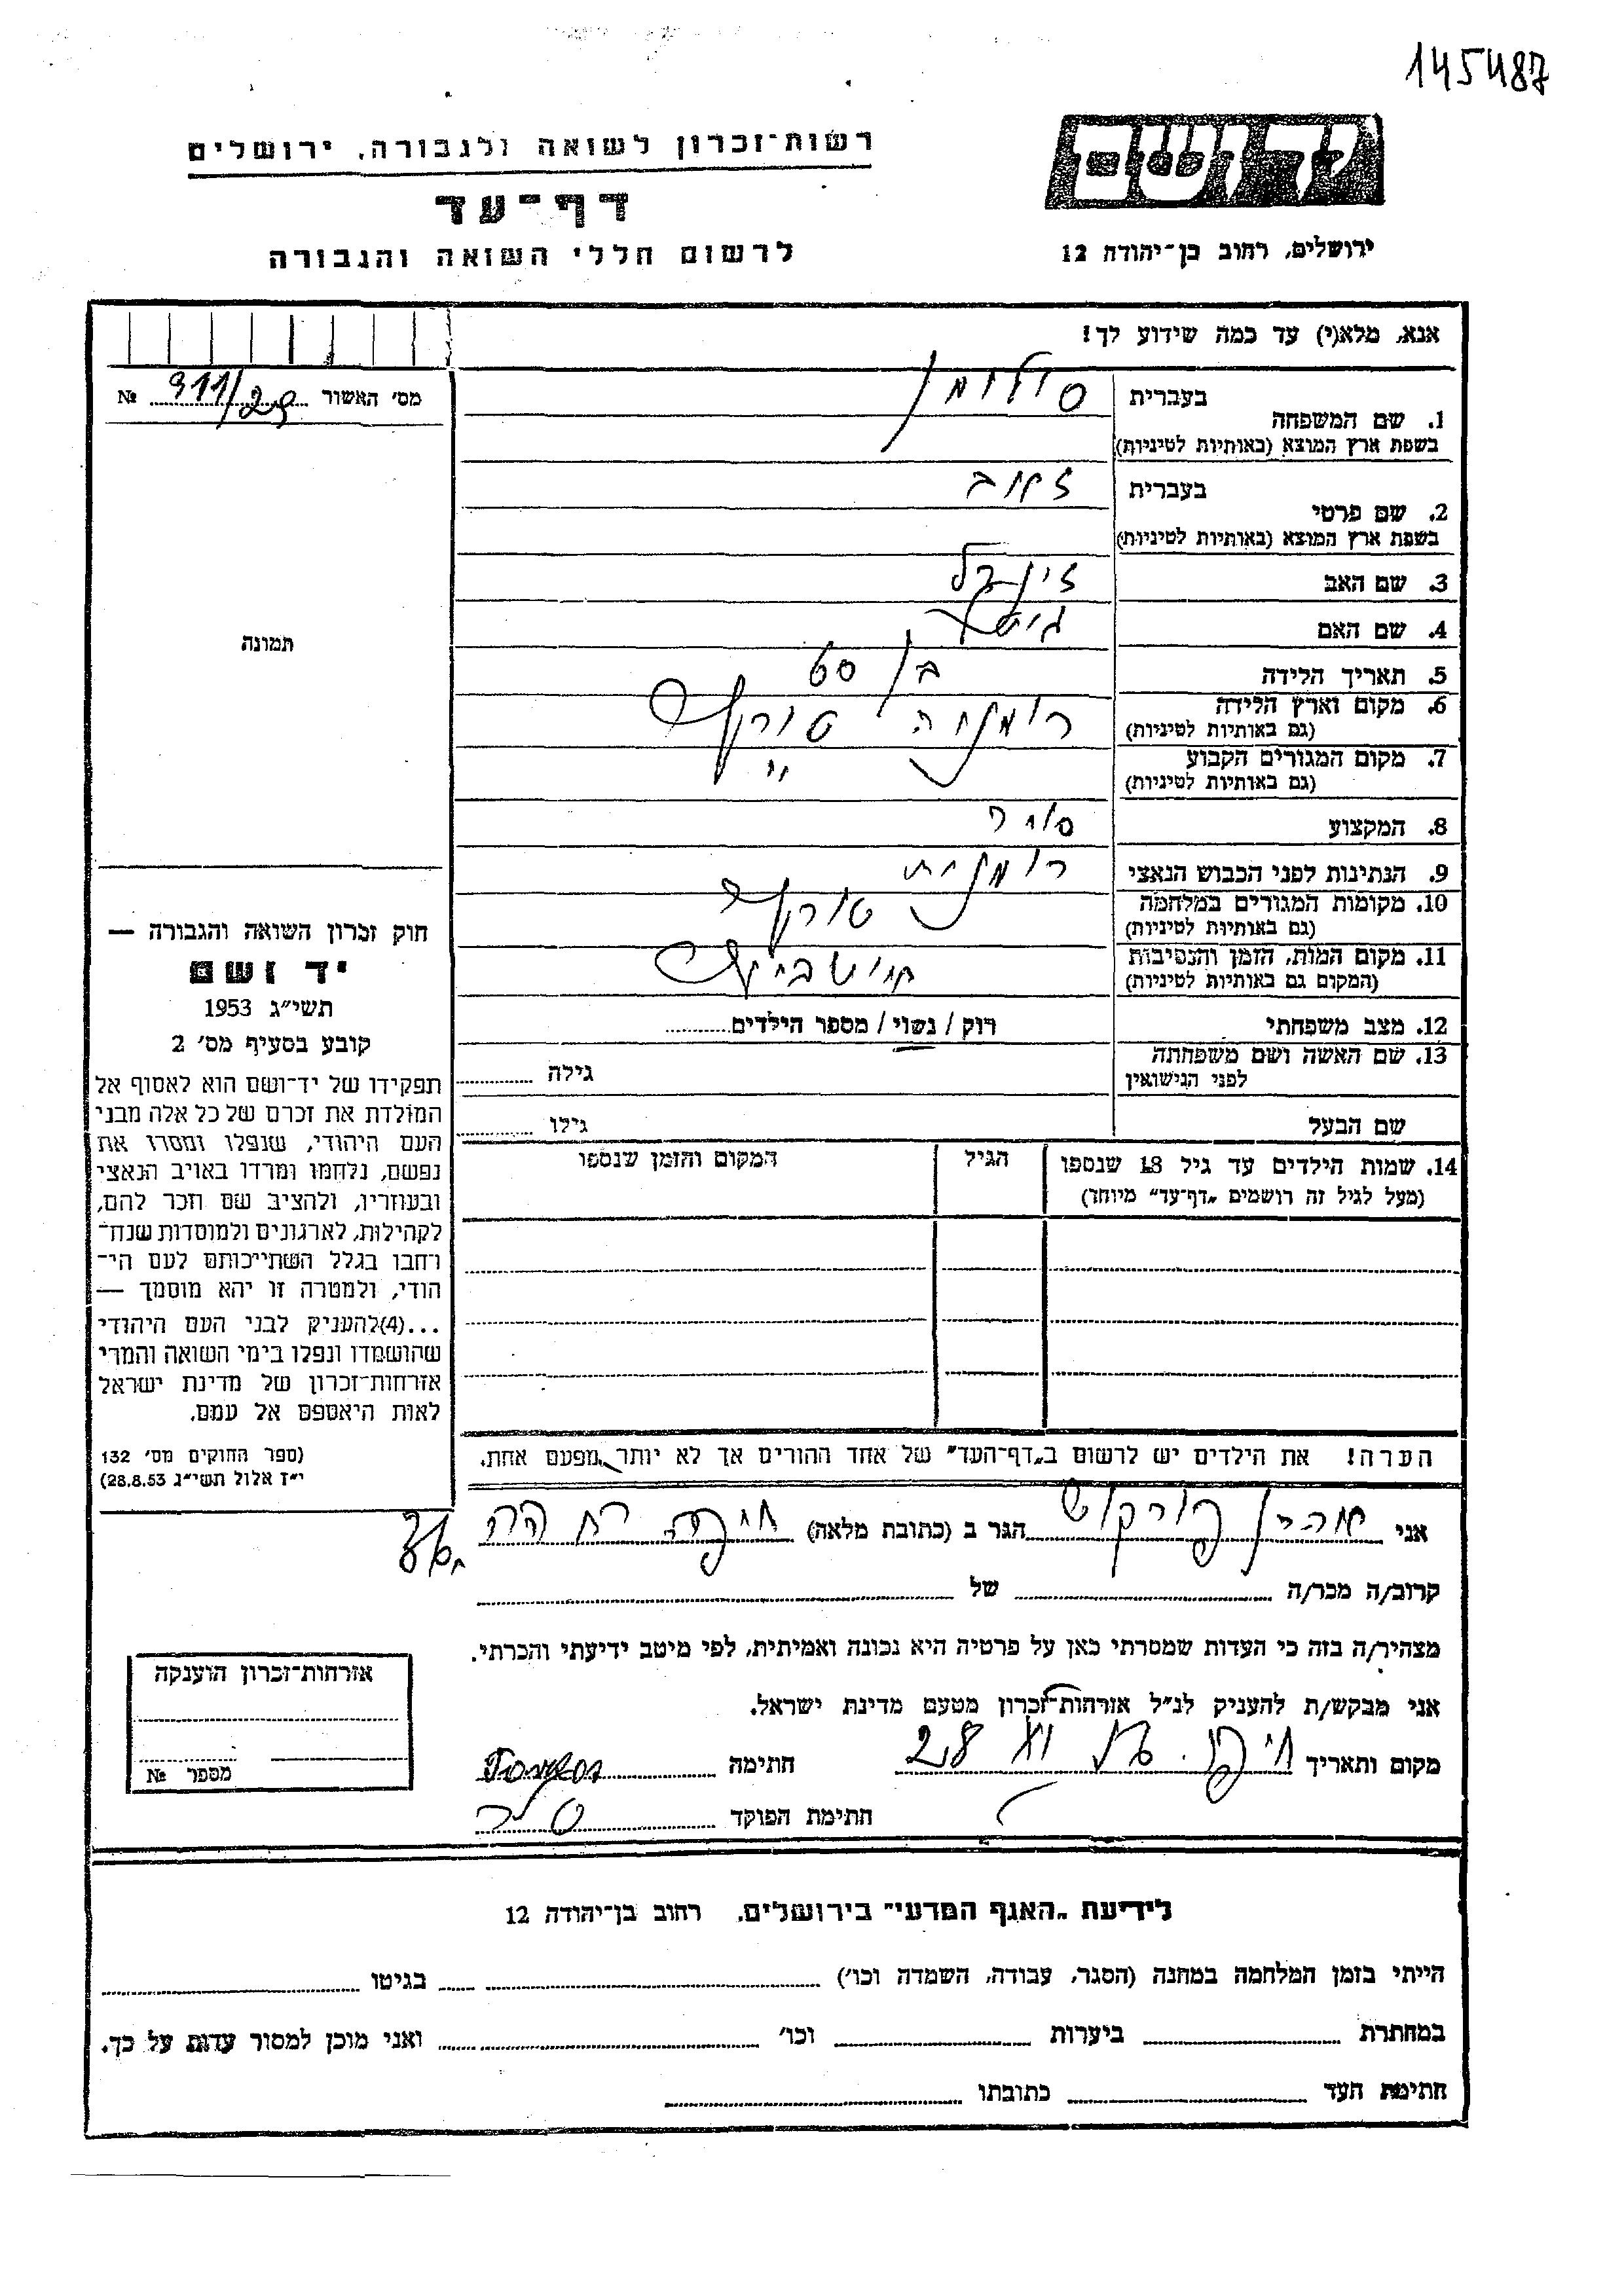 145487
רשות־זכרון לשואה ולגבורה, ירושלים
דף־עד
לרשום חללי השואה והגבורה
יד ושם
ירושלים, רחוב בן־יהודה 12
אנא, מלא(י) עד כמה שידוע לך!
מס׳ האשור 311/29 №
1. שם המשפחה
בעברית סולומון
בשפת ארץ המוצא (באותיות לטיניות)
2. שם פרטי
בעברית
בשפת ארץ המוצא (באותיות לטיניות)
3. שם האב
4. שם האם
5. תאריך הלידה בן 60
6. מקום וארץ הלידה רומניה
(גם באותיות לטיניות)
7. מקום המגורים הקבוע "
(גם באותיות לטיניות)
8. המקצוע סוחר
9. הנתינות לפני הכבוש הנאצי רומנית
10. מקומות המגורים במלחמה
(גם באותיות לטיניות)
11. מקום המות, הזמן והנסיבות
(המקום גם באותיות לטיניות)
12. מצב משפחתי רוק / נשוי / מספר הילדים
13. שם האשה ושם משפחתה
לפני הנישואין
גילה
שם הבעל גילו
14. שמות הילדים עד גיל 18 שנספו
(מעל לגיל זה רושמים „דף־עד״ מיוחד)
הגיל
המקום והזמן שנספו
הערה! את הילדים יש לרשום ב„דף־העד״ של אחד ההורים אך לא יותר מפעם אחת.
תמונה
חוק זכרון השואה והגבורה —
יד ושם
תשי״ג 1953
קובע בסעיף מס׳ 2
תפקידו של יד־ושם הוא לאסוף אל
המולדת את זכרם של כל אלה מבני
העם היהודי, שנפלו ומסרו את
נפשם, נלחמו ומרדו באויב הנאצי
ובעוזריו, ולהציב שם וזכר להם,
לקהילות, לארגונים ולמוסדות שנח־
רחבו בגלל השתייכותם לעם הי־
הודי, ולמטרה זו יהא מוסמך —
...(4)להעניק לבני העם היהודי
שהושמדו ונפלו בימי השואה והמרי
אזרחות־זכרון של מדינת ישראל
לאות היאספם אל עמם.
(ספר החוקים מס׳ 132
י״ז אלול תשי״ג 28.8.53)
אני הגר ב (כתובת מלאה) חיפה
קרוב/ה מכר/ה של
מצהיר/ה בזה כי העדות שמסרתי כאן על פרטיה היא נכונה ואמיתית, לפי מיטב ידיעתי והכרתי.
אני מבקש/ת להעניק לנ״ל אזרחות־זכרון מטעם מדינת ישראל.
מקום ותאריך חתימה
חתימת הפוקד
אזרחות־זכרון הוענקה
מספר №
לידיעת „האגף המדעי״ בירושלים, רחוב בן־יהודה 12
הייתי בזמן המלחמה במחנה (הסגר, עבודה, השמדה וכו׳) בגיטו
במחתרת ביערות וכו׳ ואני מוכן למסור עדות על כך.
חתימת העד כתובתו